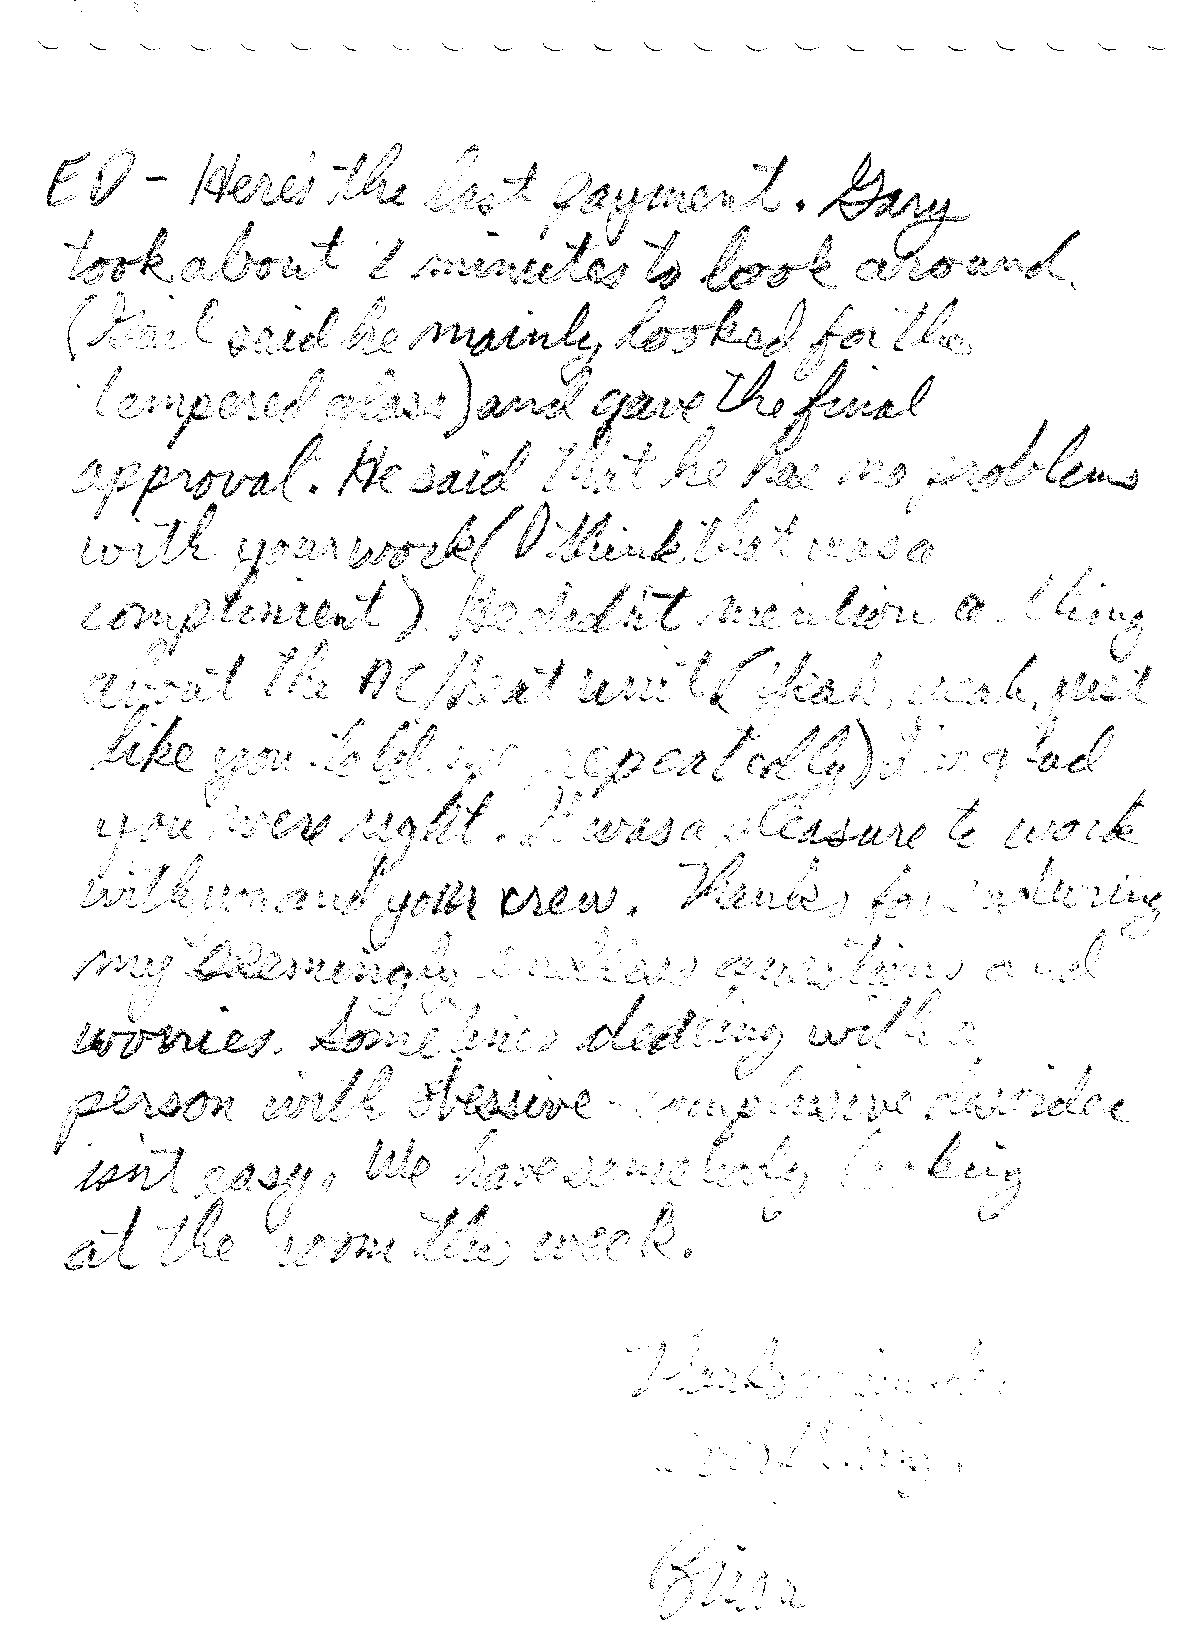 ED - Here's the last payment. Gary
took about 2 minutes to look around.
(Gail said he mainly looked for the
tempered glass) and gave the final
approval. He said that he has no problems
with your work (I think that was a
compliment). He didn't mention a thing
about the AC/heat unit (Yeah, yeah, just
like you told me repeatedly) I'm glad
you were right. It was a pleasure to work
with you and your crew. Thanks for enduring
my seemingly endless questions and
worries. Sometimes dealing with a
person with obsessive-compulsive disorder
isn't easy. We have somebody looking
at the room this week.
Thanks again for
everything.